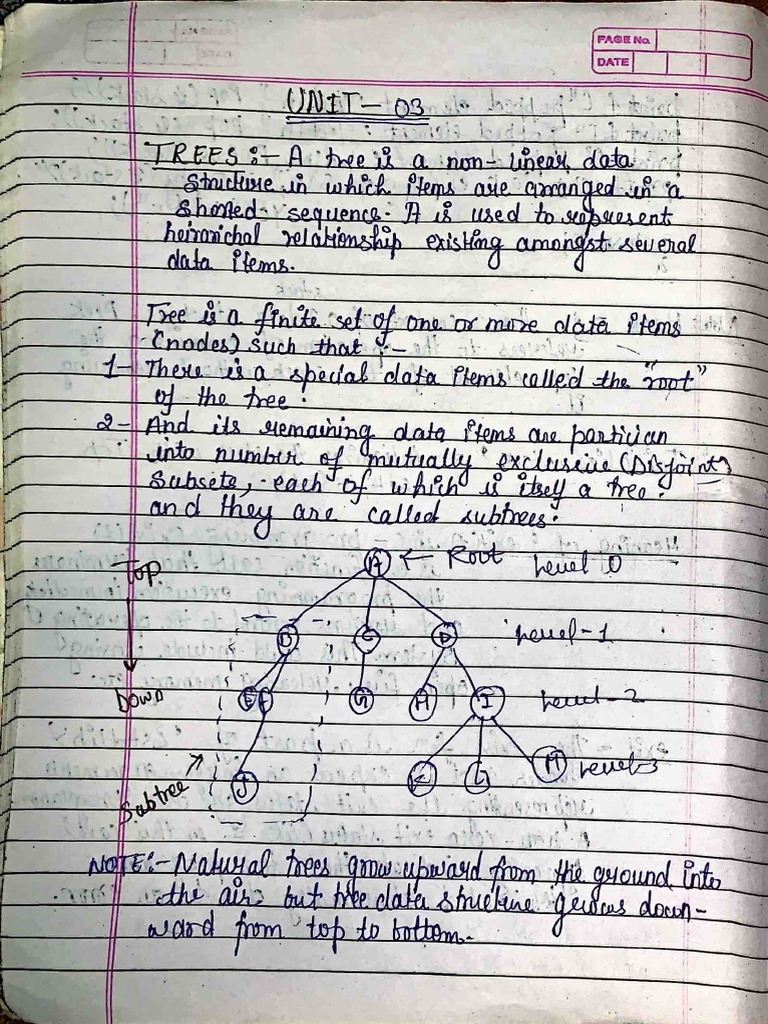 PAGE No.
DATE
UNIT - 03
TREES :- A tree is a non-linear data
structure in which items are arranged in a
shorted sequence. It is used to represent
heirarichal relationship existing amongst several
data items.
Tree is a finite set of one or more data items
(nodes) such that :-
1- There is a special data items called the "root"
of the tree.
2- And its remaining data items are partician
into number of mutually exclusive (Disjoint)
Subsets, each of which is itself a tree.
and they are called subtrees.
A ← Root Level 0
Top
B C D Level-1
Down
E F G H I Level-2
J K L M Level-3
Subtree
NOTE:- Natural trees grow upward from the ground into
the air, but tree data structure grows down-
ward from top to bottom.